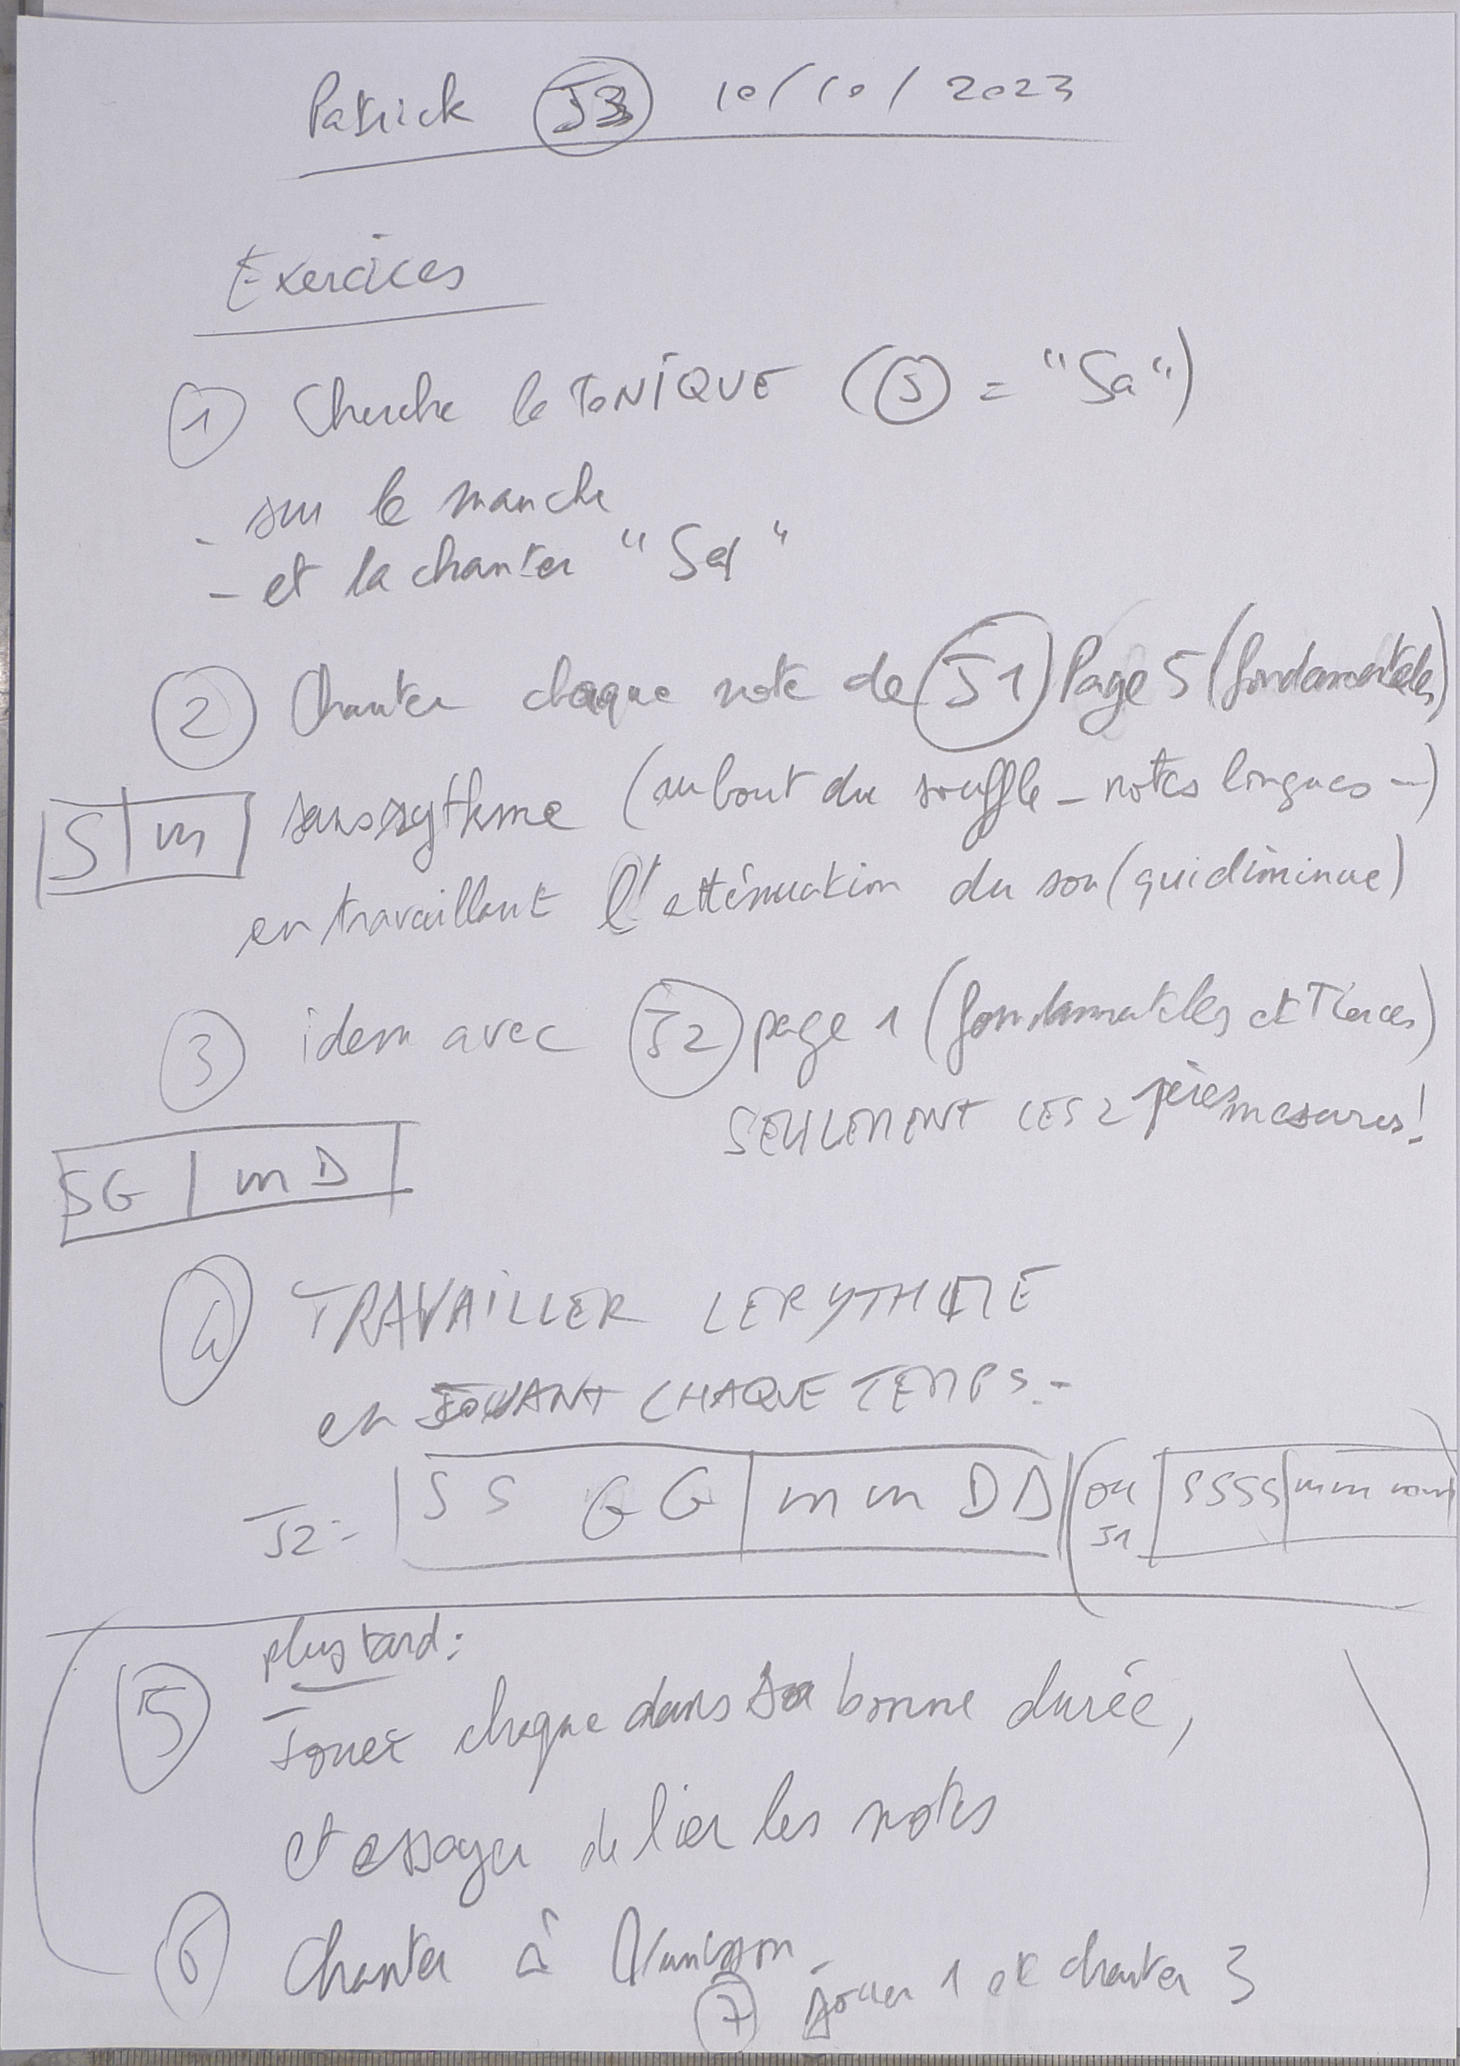 Patrick J3 10/10/2023
Exercices
1 Cherche la TONIQUE (S = "Sa")
- sur le manche
- et la chanter "Sa"
2 Chanter chaque note de J1 Page 5 (fondamentales)
S | m sans rythme (au bout du souffle - notes longues -)
en travaillant l'atténuation du son (qui diminue)
3 idem avec J2 page 1 (fondamentales et Tierces)
SEULEMENT LES 2 1ères mesures!
SG | m D
4 TRAVAILLER LE RYTHME
en JOUANT CHAQUE TEMPS.-
J2: | S S G G | m m D D | (ou J1 | SSSS | mm mm
plus tard:
5 Jouer chaque dans sa bonne durée,
et essayer de lier les notes
6 Chanter à l'unisson -
7 Jouer 1 et chanter 3